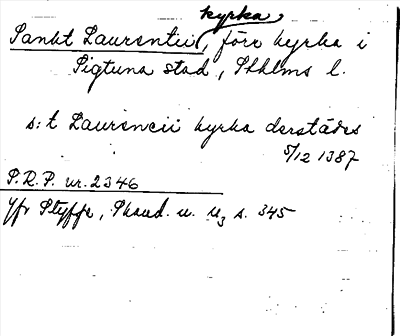 kyrka,
Sankt Laurentii, förr kyrka i
Sigtuna stad, Sthlms l.
s:t Laurencii kyrka derstädes
5/12 1387
S.R.P. nr. 2346
Jfr Styffe, Skand. u. U3 s. 345